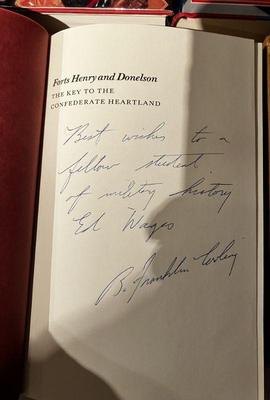 Forts Henry and Donelson
THE KEY TO THE
CONFEDERATE HEARTLAND
Best wishes to a
fellow student
of military history
Ed Wages
B. Franklin Cooling